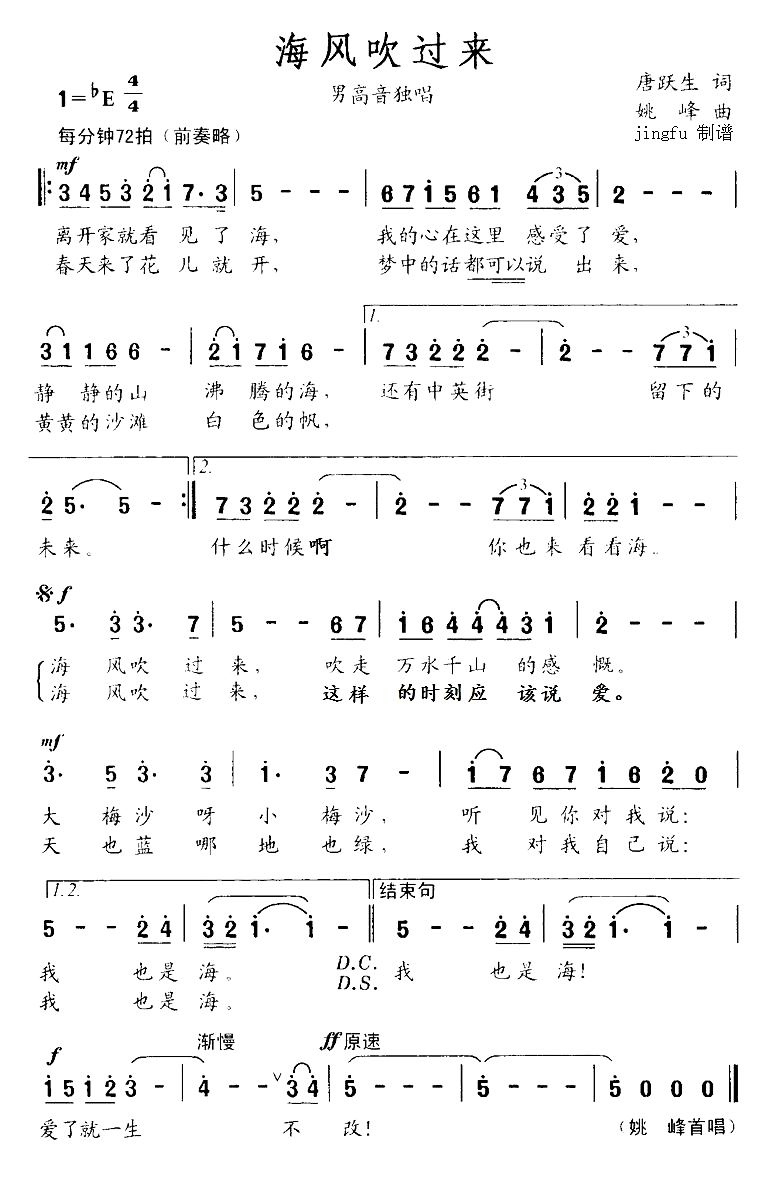 海风吹过来
1=♭E 4/4
男高音独唱
唐跃生 词
姚 峰 曲
jingfu 制谱
每分钟72拍（前奏略）
mf
3 4 5 3 2 1 7· 3 | 5 - - - | 6 7 1 5 6 1 4 3 5 | 2 - - - |
离开家就看 见 了 海， 我的心在这里 感受了 爱，
春天来了花 儿 就 开， 梦中的话都可以说 出 来，
1.
3 1 1 6 6 - | 2 1 7 1 6 - | 7 3 2 2 2 - | 2 - - 7 7 1 |
静 静的山 沸 腾的海， 还有中英街 留下的
黄黄的沙滩 白 色的帆，
2.
2 5· 5 - :‖ 7 3 2 2 2 - | 2 - - 7 7 1 | 2 2 1 - - |
未来。 什么时候啊 你也来 看看海。
f
5· 3 3· 7 | 5 - - 6 7 | 1 6 4 4 4 3 1 | 2 - - - |
海 风吹 过 来， 吹走 万水千山 的感 慨。
海 风吹 过 来， 这样 的时刻应 该说 爱。
mf
3· 5 3· 3 | 1· 3 7 - | 1 7 6 7 1 6 2 0 |
大 梅沙 呀 小 梅沙， 听 见你对我说：
天 也蓝 哪 地 也绿， 我 对我自己说：
1.2. 结束句
5 - - 2 4 | 3 2 1· 1 - ‖ 5 - - 2 4 | 3 2 1· 1 - |
我 也是 海。 D.C. 我 也是 海！
我 也是 海。 D.S.
f 渐慢 ff 原速
1 5 1 2 3 - | 4 - - ∨ 3 4 | 5 - - - | 5 - - - | 5 0 0 0 ‖
爱了就一生 不 改！ （姚 峰首唱）